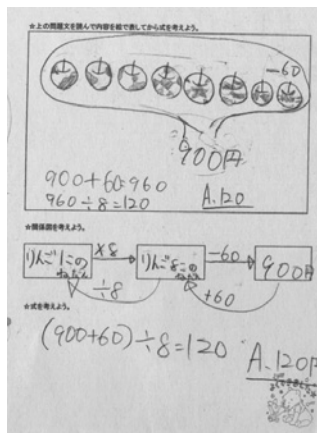 ★上の問題文を読んで内容を絵で表してから式を考えよう。
-60
900円
900+60=960
960÷8=120
A.120
★関係図を考えよう。
りんご1この
ねだん
×8
りんご8この
ねだん
-60
900円
÷8
+60
★式を考えよう。
(900+60)÷8=120
A.120円